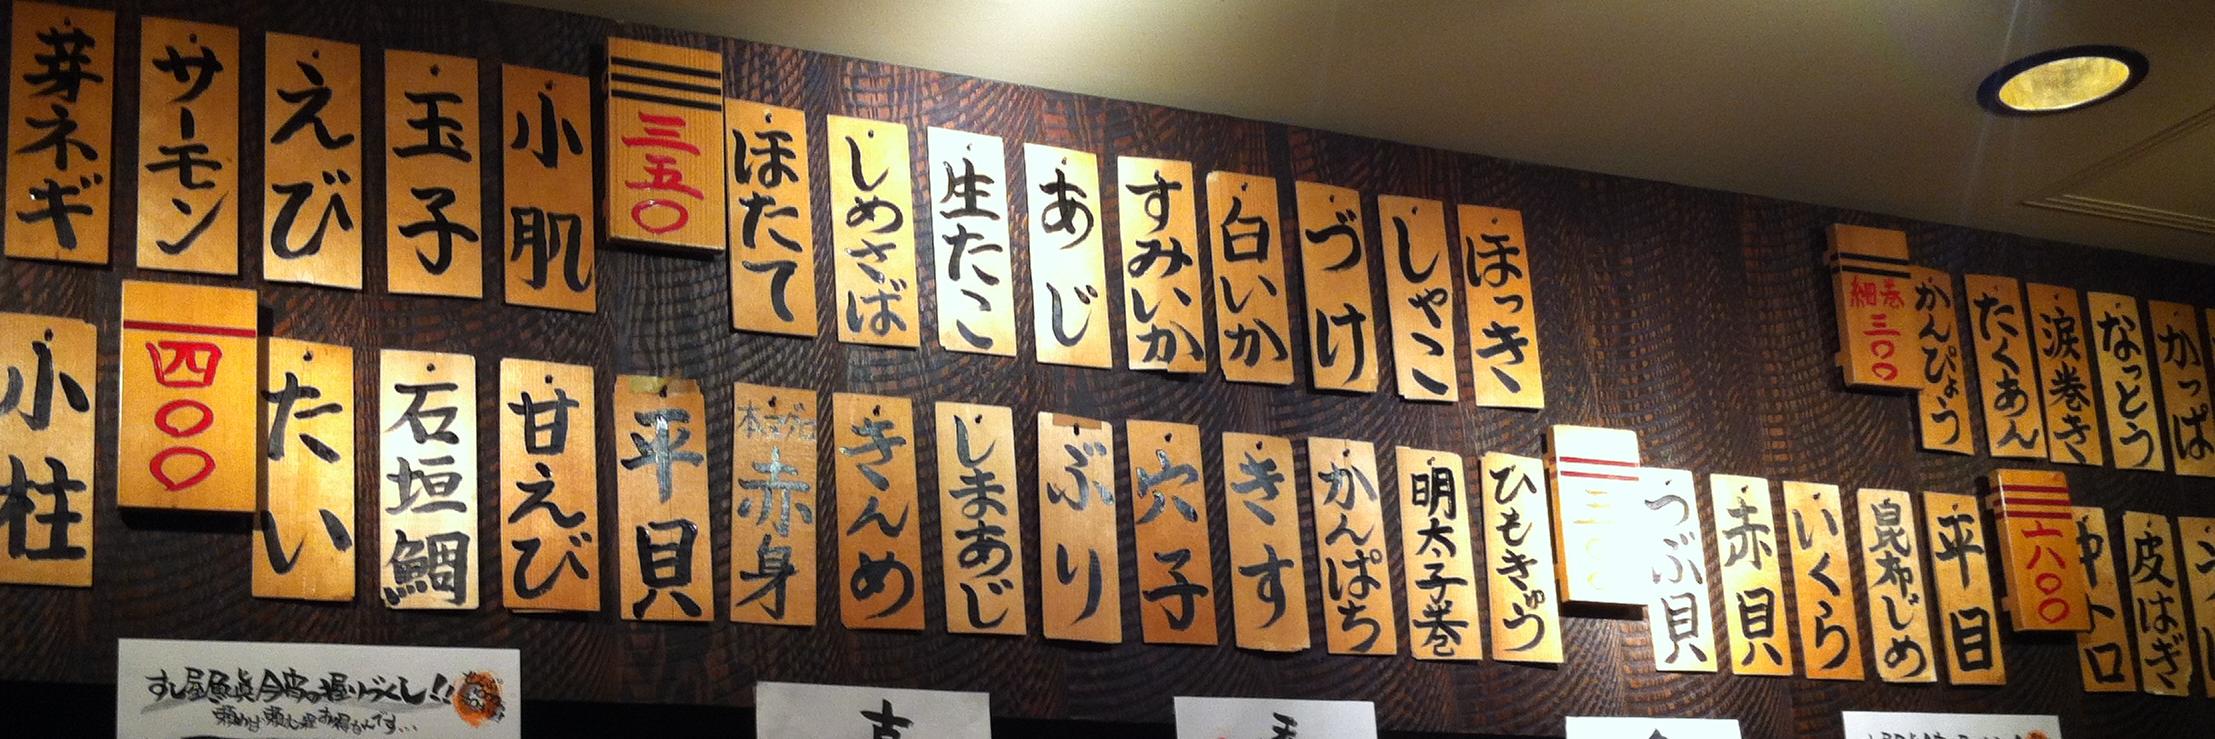 芽ネギ
サーモン
えび
玉子
小肌
三五〇
ほたて
しめさば
生たこ
あじ
すみいか
白いか
づけ
しゃこ
ほっき
細巻
三〇〇
かんぴょう
たくあん
涙巻き
なっとう
かっぱ
小柱
四〇〇
たい
石垣鯛
甘えび
平貝
本マグロ
赤身
きんめ
しまあじ
ぶり
穴子
きす
かんぱち
明太子巻
ひもきゅう
つぶ貝
赤貝
いくら
昆布じめ
平目
六〇〇
中トロ
皮はぎ
すし屋魚真今宵の握りづくし!!
頼めば頼む程お得なんです…